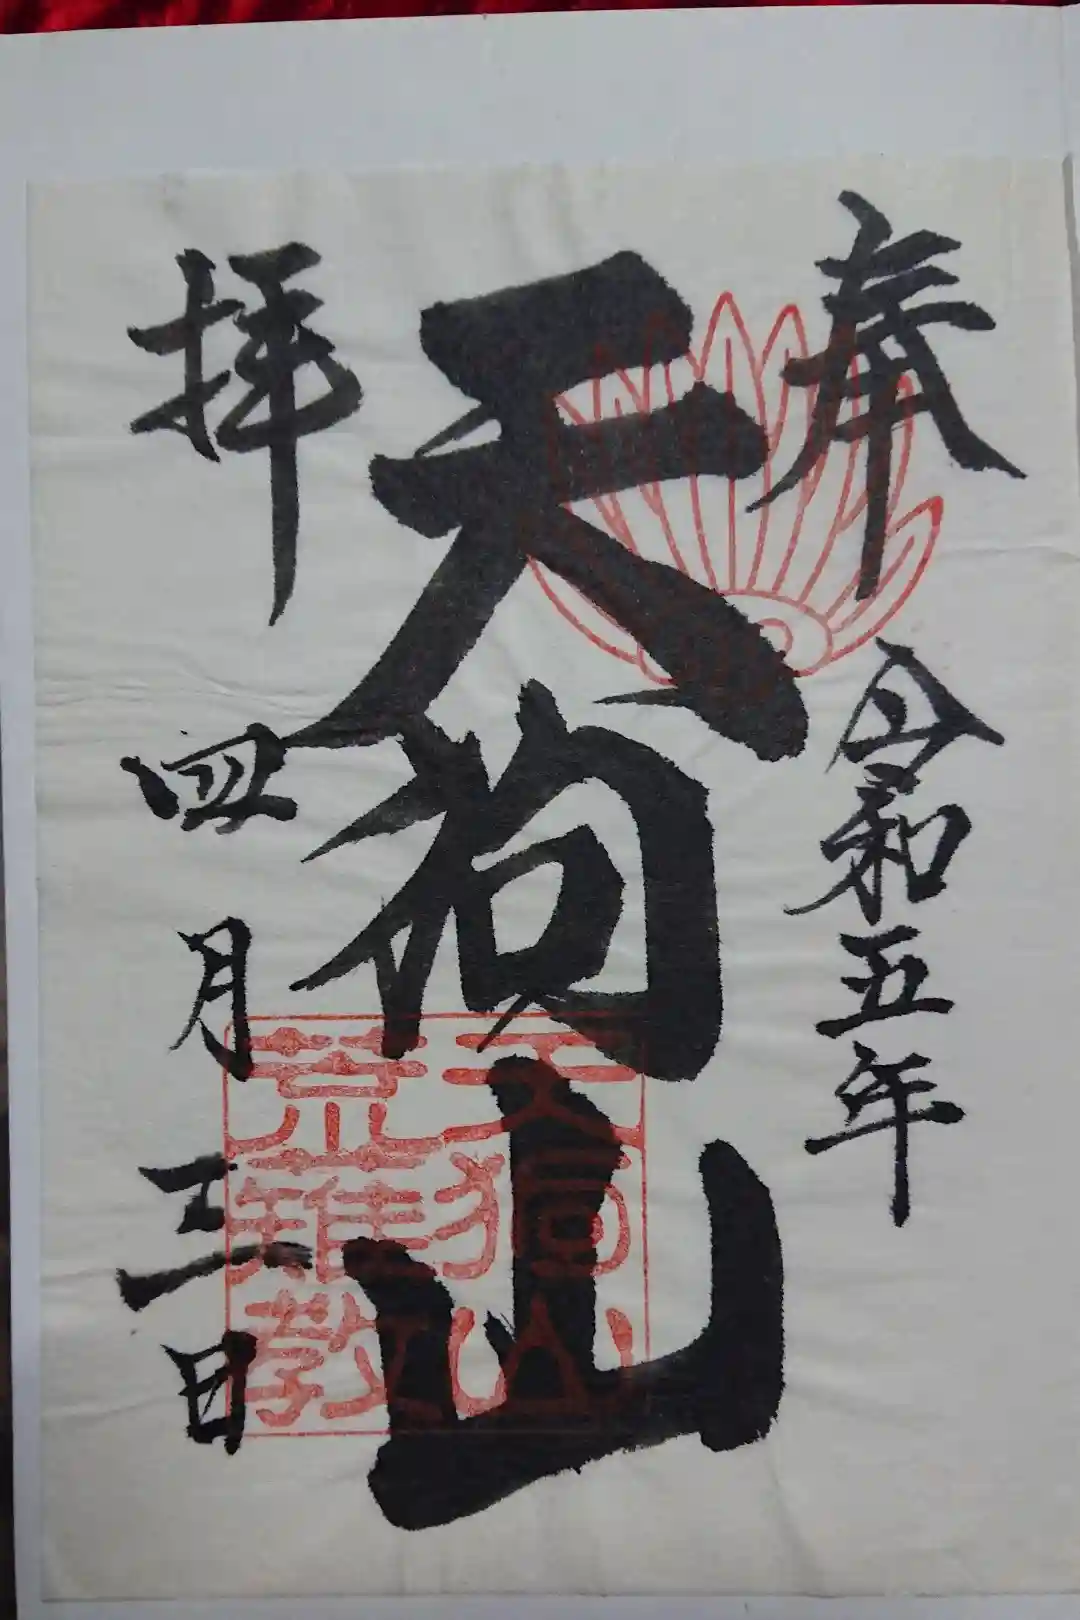 奉
令和五年
天狗山
拝
四月三日
天狗山
荒薙教